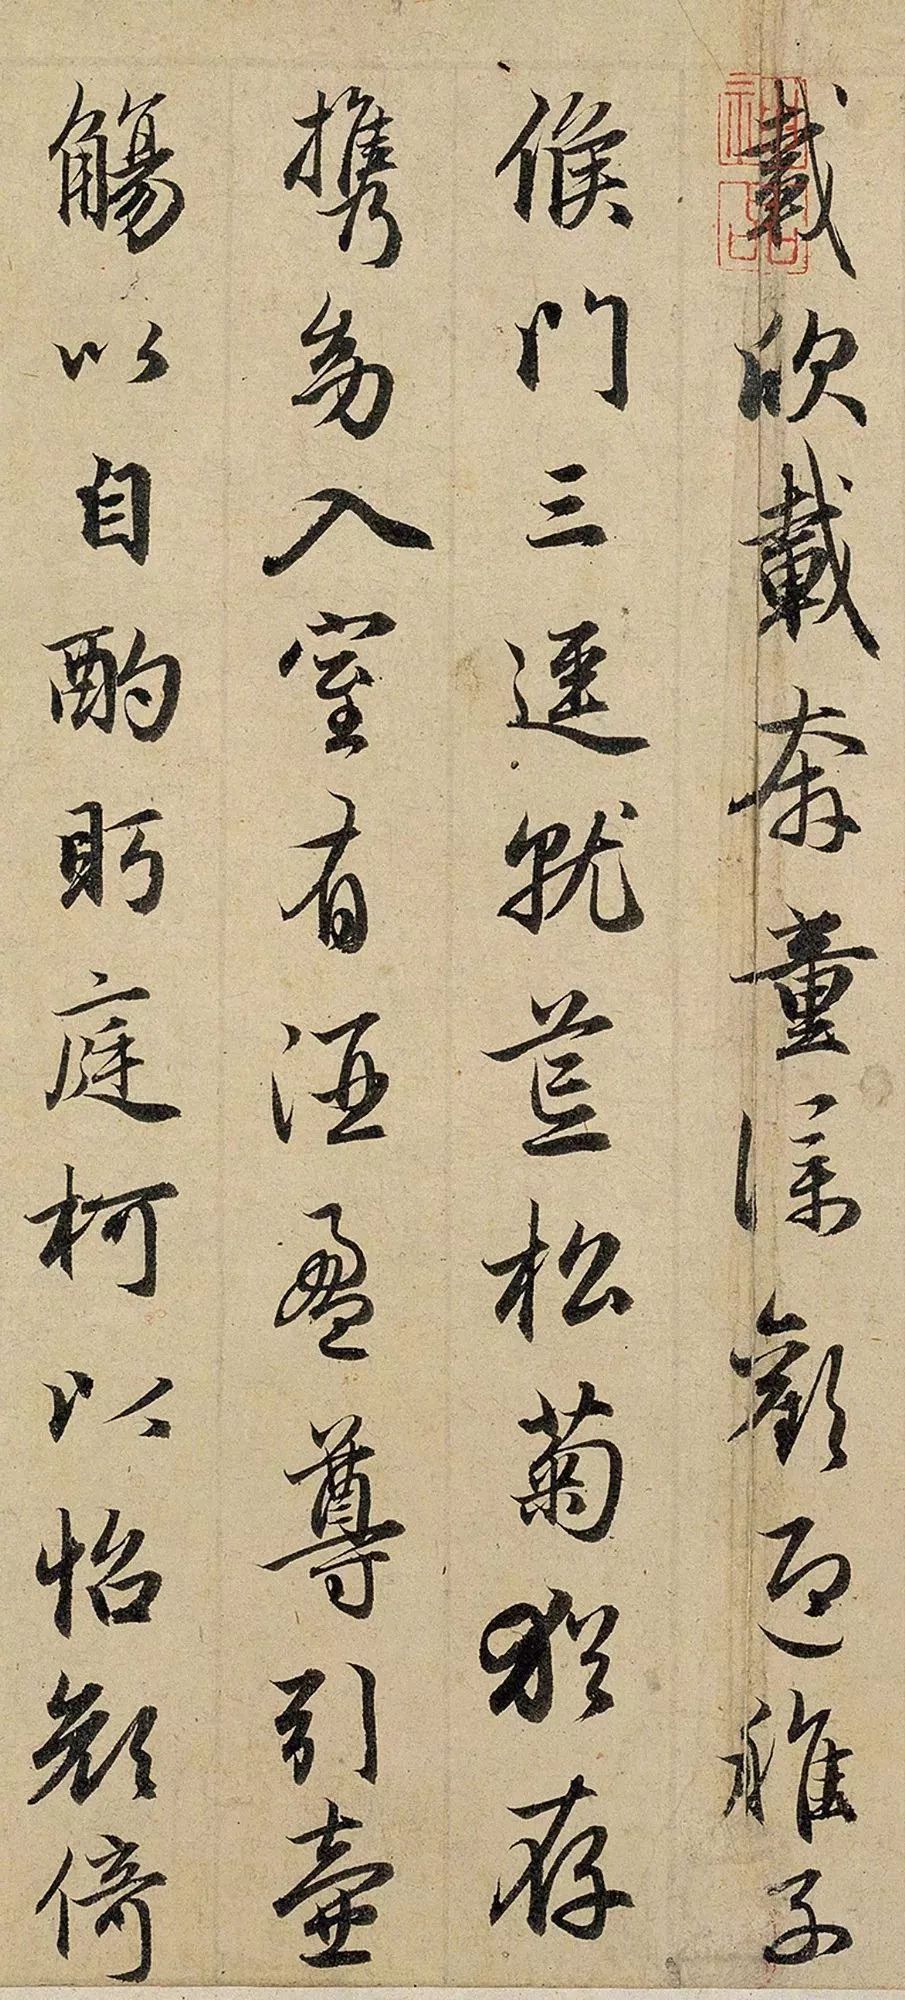 載欣載奔童僕歡迎稚子
候門三逕就荒松菊猶存
携幼入室有酒盈尊引壺
觴以自酌眄庭柯以怡顏倚